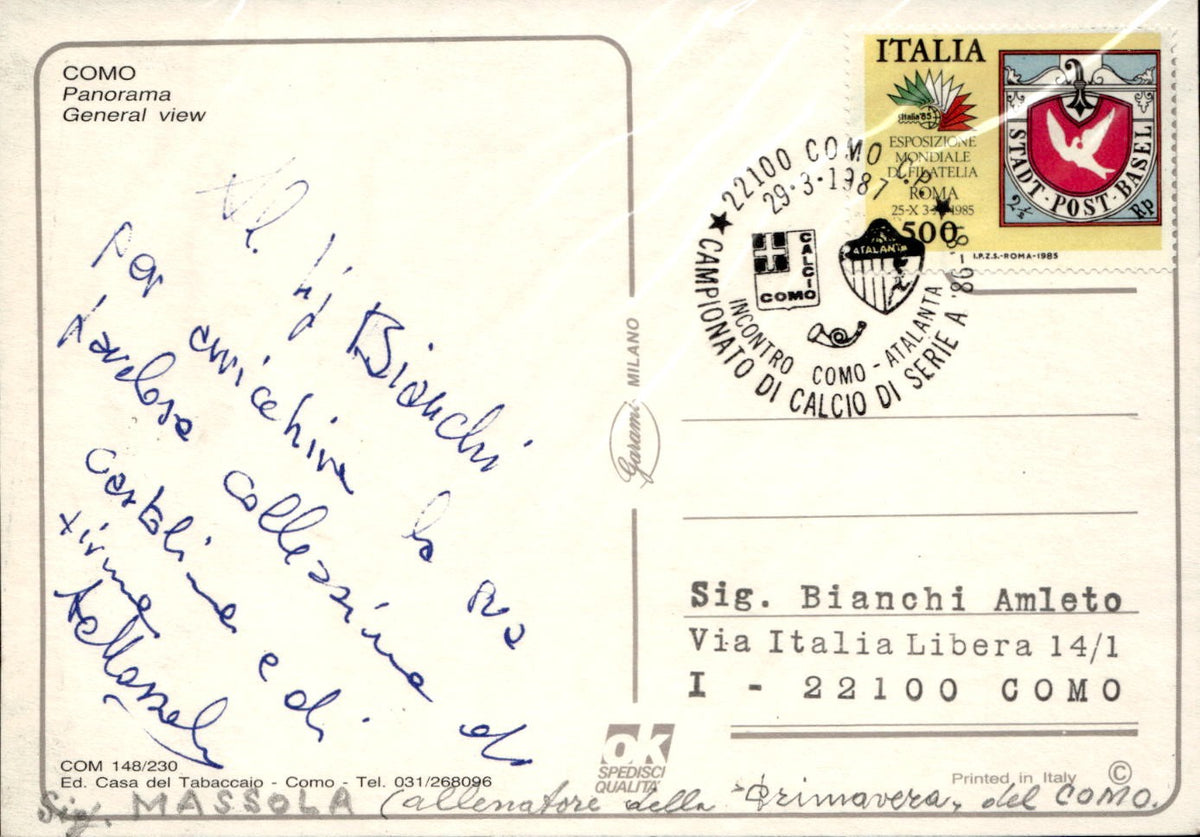 COMO
Panorama
General view
Al Sig Bianchi
per arricchire la sua
favolosa collezione di
cartoline e di
firme
COM 148/230
Ed. Casa del Tabaccaio - Como - Tel. 031/268096
Garami MILANO
OK
SPEDISCI
QUALITÀ
ITALIA
Italia '85
ESPOSIZIONE
MONDIALE
DI FILATELIA
ROMA
25-X 3-XI 1985
500
STADT-POST-BASEL
2½ Rp
I.P.Z.S.-ROMA-1985
22100 COMO C.P.
29-3-1987
CALCIO
COMO
ATALANTA
INCONTRO COMO - ATALANTA
CAMPIONATO DI CALCIO DI SERIE A '86-'87
Sig. Bianchi Amleto
Via Italia Libera 14/1
I - 22100 COMO
Printed in Italy ©
Sig. MASSOLA (allenatore della "Primavera" del COMO.